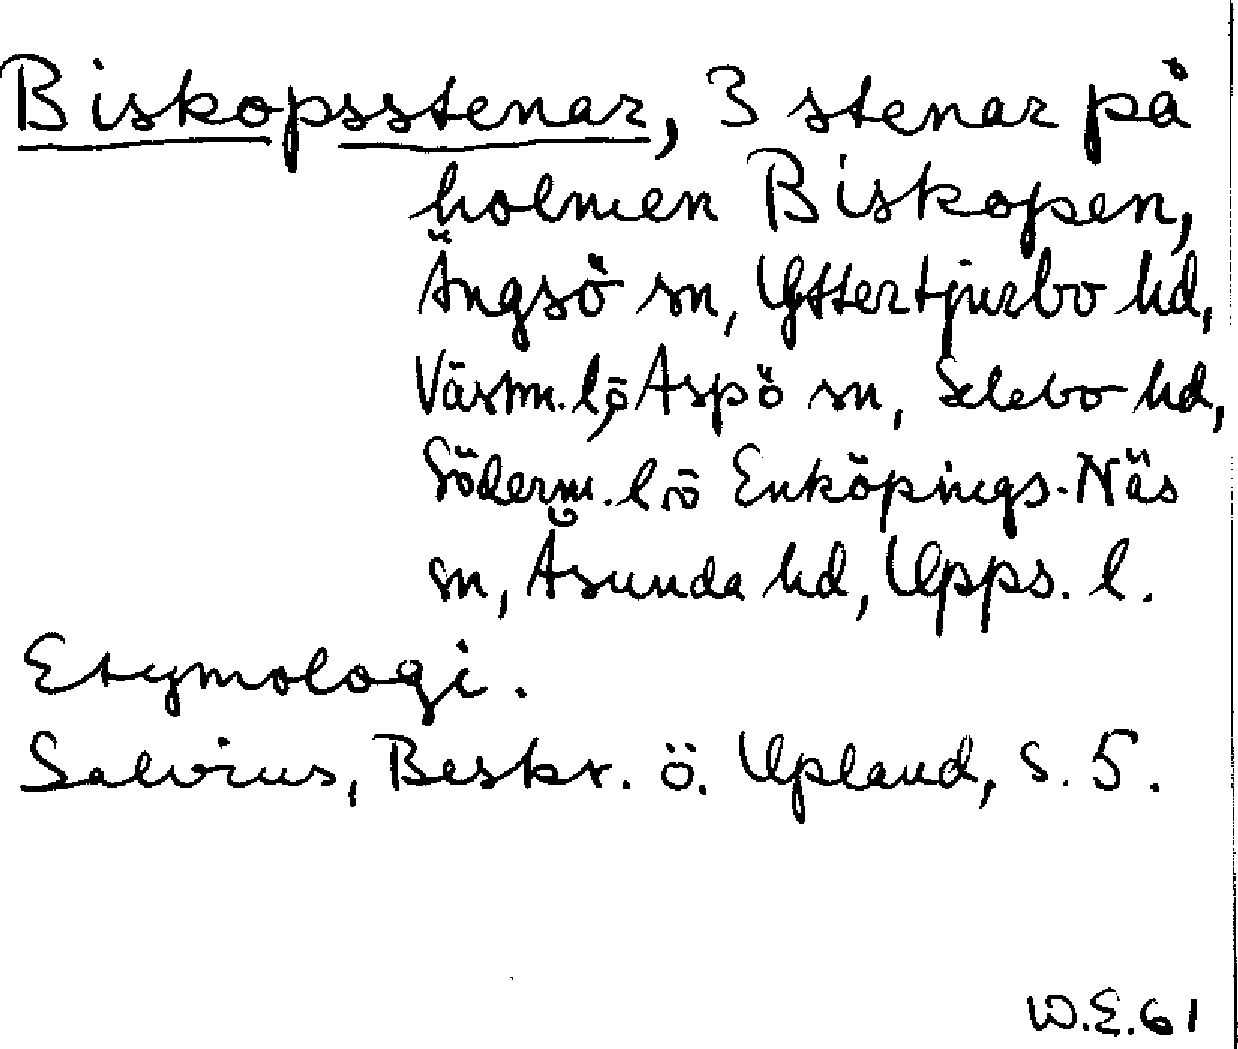 Biskopsstenar, 3 stenar på
holmen Biskopen,
Ängsö sn, Yttertjurbo hd,
Västm. l, Aspö sn, Selebo hd,
Söderm. l o Enköpings-Näs
sn, Åsunda hd, Upps. l.
Etymologi.
Salvius, Beskr. ö. Upland, S. 5.
W.E.61